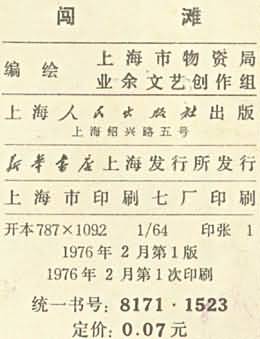 闯 滩
编 绘 上海市物资局
业余文艺创作组
上海人民出版社出版
上海绍兴路五号
新华书店上海发行所发行
上海市印刷七厂印刷
开本 787×1092 1/64 印张 1
1976 年 2 月第 1 版
1976 年 2 月第 1 次印刷
统一书号: 8171·1523
定价: 0.07 元